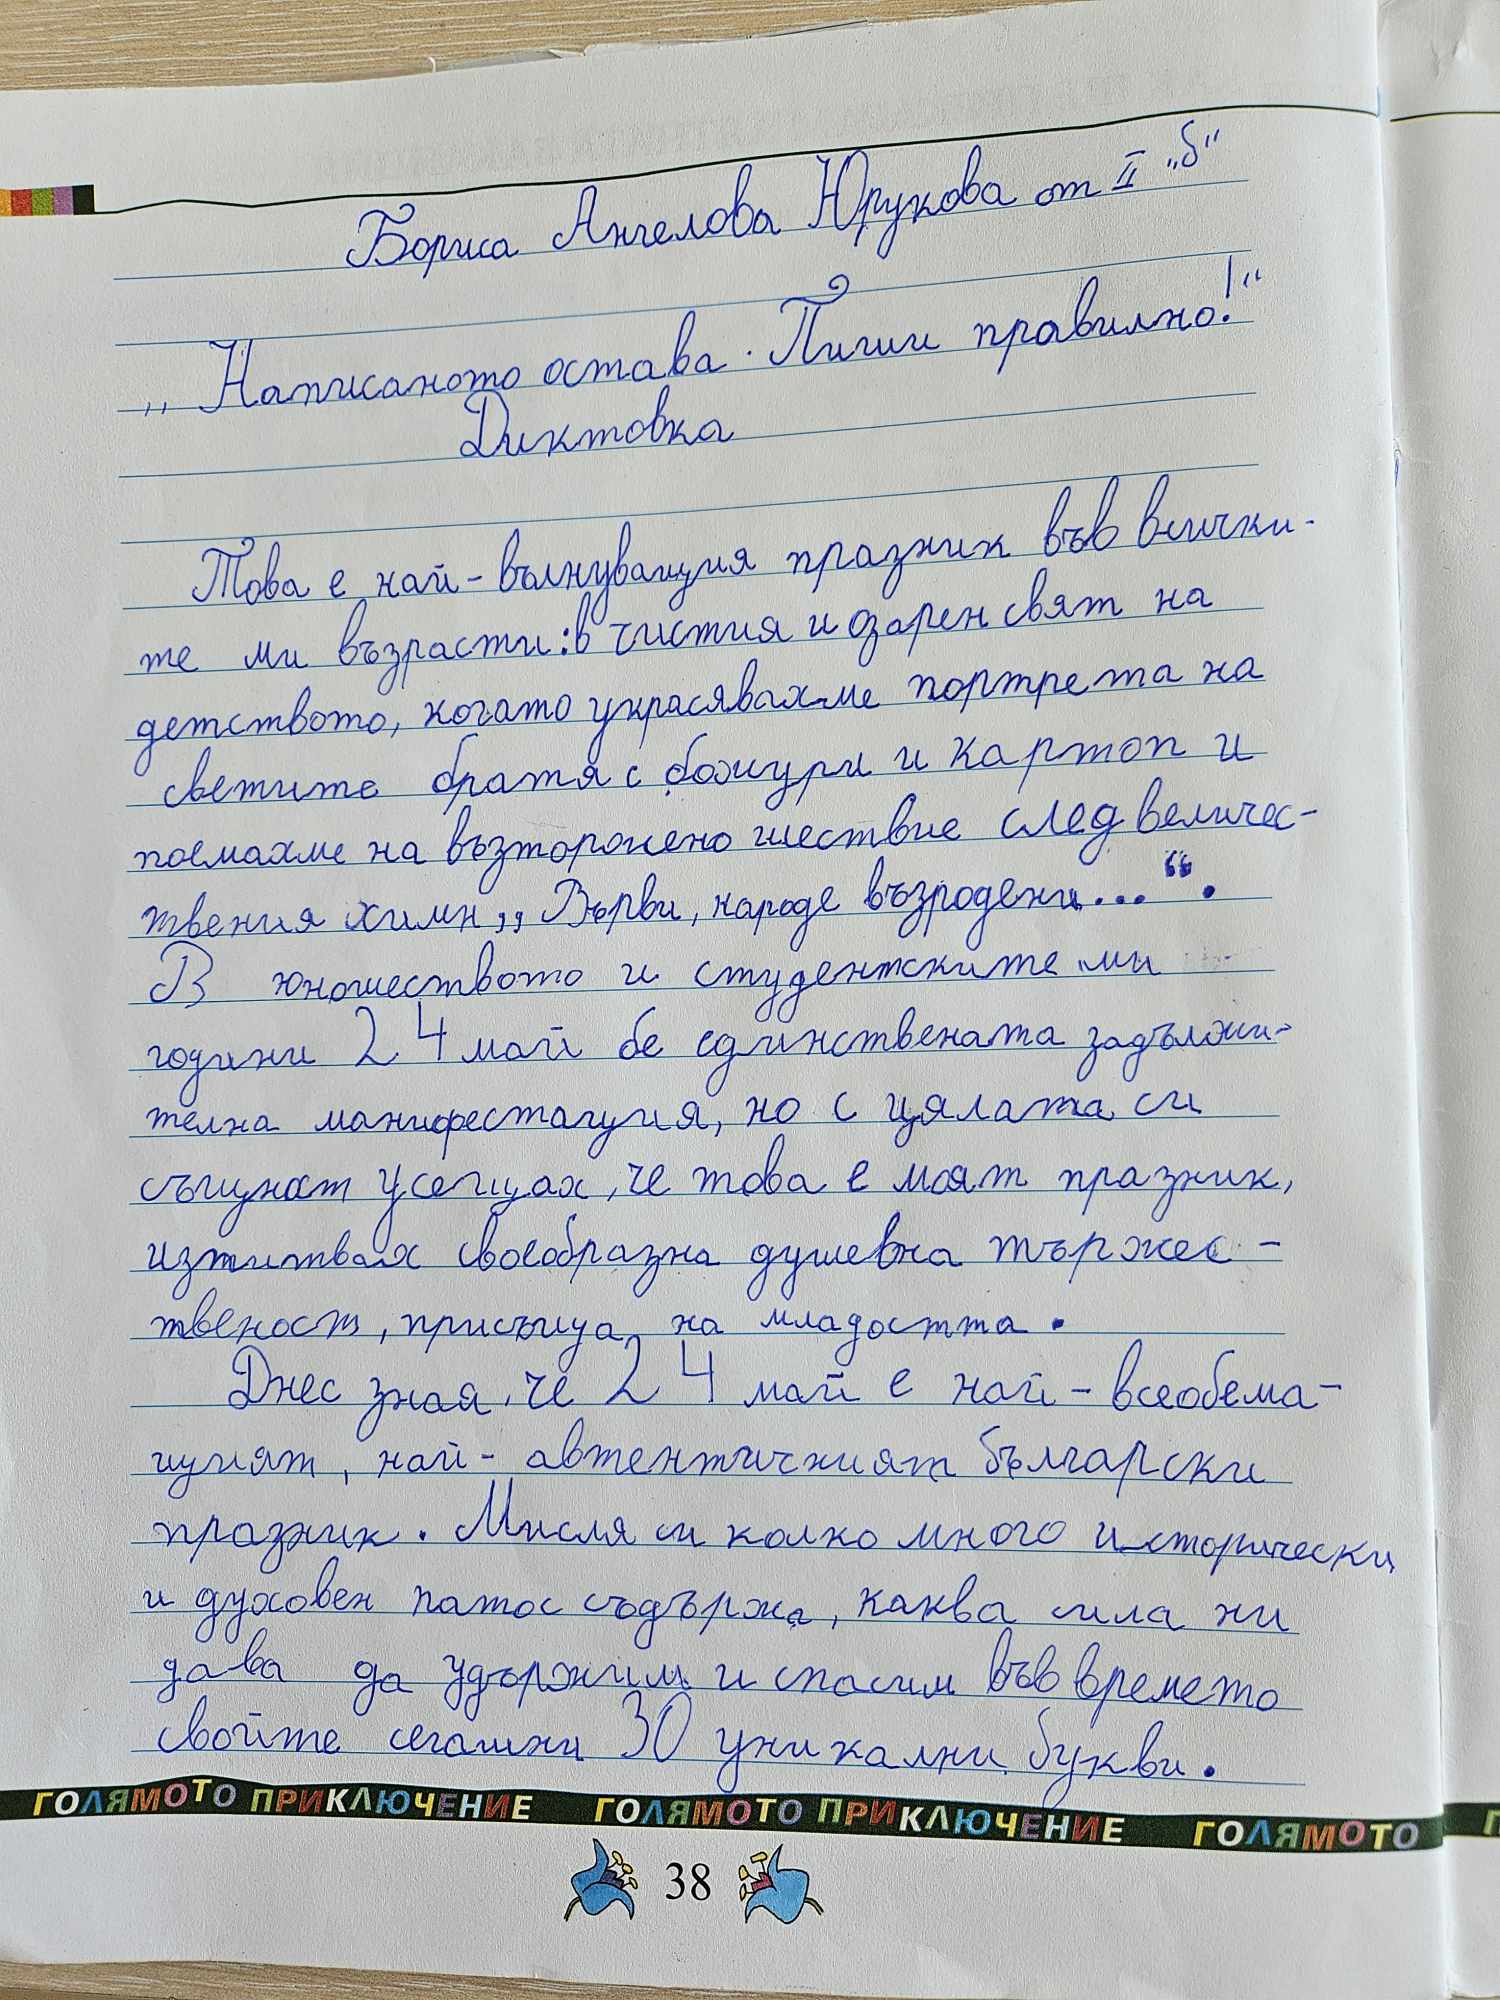 Бориса Ангелова Юрукова от II „б“
„Написаното остава. Пиши правилно!“
Диктовка
Това е най-вълнуващия празник във всички-
те ми възрасти: в чистия и озарен свят на
детството, когато украсявахме портрета на
светите братя с божури и картоп и
поемахме на възторжено шествие след величес-
твения химн „Върви, народе възродени...“.
В юношеството и студентските ми
години 24 май бе единствената задължи-
телна манифестация, но с цялата си
същност усещах, че това е моят празник,
изпитвах своеобразна душевна тържес-
твеност, присъща на младостта.
Днес зная, че 24 май е най-всеобема-
щият, най-автентичният български
празник. Мисля си колко много исторически
и духовен патос съдържа, каква сила ни
дава да удържим и спасим във времето
своите сегашни 30 уникални букви.
ГОЛЯМОТО ПРИКЛЮЧЕНИЕ ГОЛЯМОТО ПРИКЛЮЧЕНИЕ ГОЛЯМОТО
38